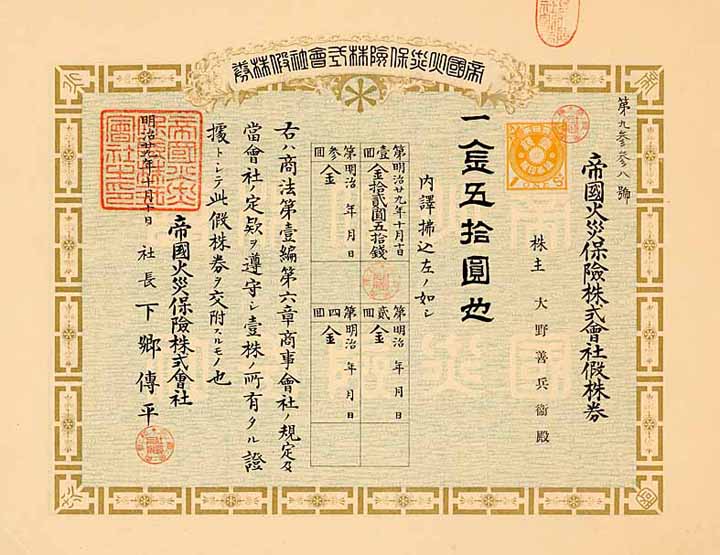 帝國火災保險株式會社假株券
第九参参八號
帝國火災保險株式會社假株券
株主 大野善兵衞殿
一金五拾圓也
内譯拂込左ノ如シ
第壹回
明治廿九年十月十日
金拾貳圓五拾錢
第貳回
明治 年 月 日
金
第参回
明治 年 月 日
金
第四回
明治 年 月 日
金
右ハ商法第壹編第六章商事會社ノ規定及
當會社ノ定欵ヲ遵守シ壹株ノ所有タル證
據トシテ此假株券ヲ交附スルモノ也
明治廿九年十月十日
帝國火災保險株式會社
社長 下郷傳平
帝國火災
保險株式
會社之印